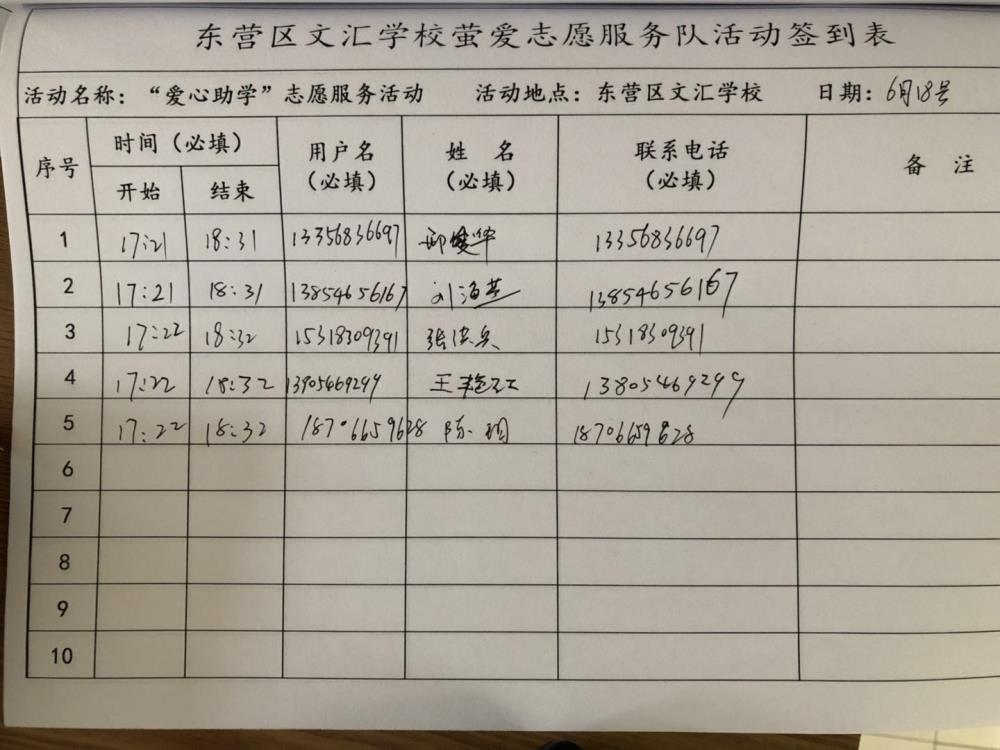 东营区文汇学校萤爱志愿服务队活动签到表
活动名称：“爱心助学”志愿服务活动 活动地点：东营区文汇学校 日期：6月18号
序号 时间（必填） 用户名（必填） 姓 名（必填） 联系电话（必填） 备 注
开始 结束
1 17:21 18:31 13356836697 邢俊华 13356836697
2 17:21 18:31 13854656167 刘海燕 13854656167
3 17:22 18:32 15318309391 张洪兵 15318309391
4 17:22 18:32 13805469299 王艳红 13805469299
5 17:22 18:32 18706659628 陈 18706659628
6
7
8
9
10